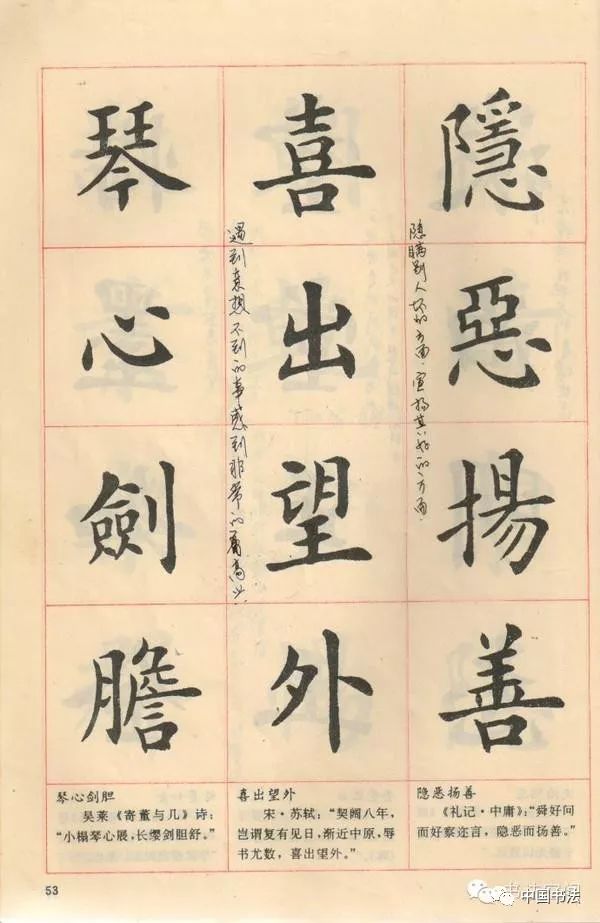 隱惡揚善
隐瞒别人坏的方面，宣扬其好的一方面．
喜出望外
遇到意想不到的事感到非常的高兴．
琴心劍膽
隐恶扬善
《礼记·中庸》：“舜好问
而好察迩言，隐恶而扬善。”
喜出望外
宋·苏轼：“契阔八年，
岂谓复有见日，渐近中原，辱
书尤数，喜出望外。”
琴心剑胆
吴莱《寄董与几》诗：
“小榻琴心展，长缨剑胆舒。”
53
中国书法